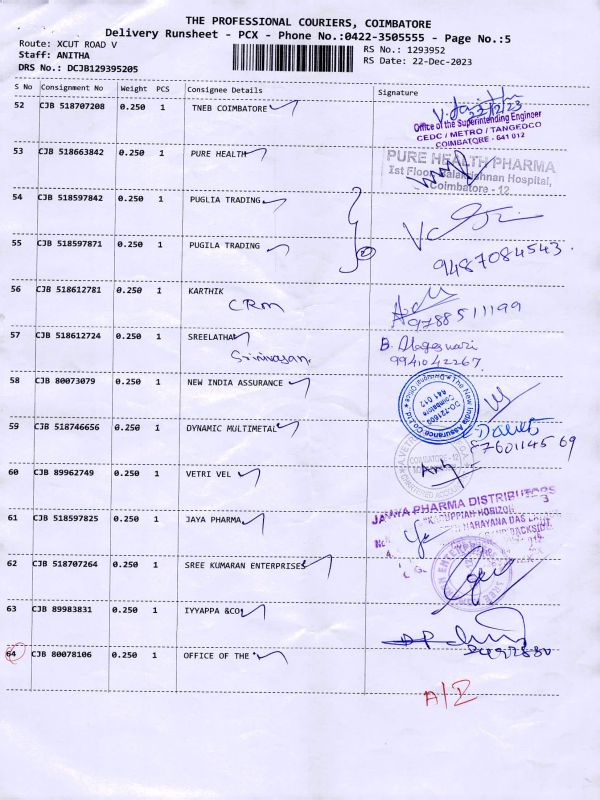 THE PROFESSIONAL COURIERS, COIMBATORE
Delivery Runsheet - PCX - Phone No.:0422-3505555 - Page No.:5
Route: XCUT ROAD V
RS No.: 1293952
Staff: ANITHA
RS Date: 22-Dec-2023
DRS No.: DCJB129395205
S No Consignment No Weight PCS Consignee Details Signature
52 CJB 518707208 0.250 1 TNEB COIMBATORE
23/12/23
Office of the Superintending Engineer
CEDC / METRO / TANGEDCO
COIMBATORE - 641 012
53 CJB 518663842 0.250 1 PURE HEALTH
PURE HEALTH PHARMA
Ist Floor, Balakrishnan Hospital,
Coimbatore - 12
54 CJB 518597842 0.250 1 PUGLIA TRADING
55 CJB 518597871 0.250 1 PUGILA TRADING
2
9487084543
56 CJB 518612781 0.250 1 KARTHIK
CRM
9788511199
57 CJB 518612724 0.250 1 SREELATHA
Srinivasan
B. Alageswari
9941042267
58 CJB 80073079 0.250 1 NEW INDIA ASSURANCE
The New India Assurance Co.Ltd.
DO-721600
Coimbatore
641 012
59 CJB 518746656 0.250 1 DYNAMIC MULTIMETAL
8760114569
60 CJB 89962749 0.250 1 VETRI VEL
COIMBATORE - 12
61 CJB 518597825 0.250 1 JAYA PHARMA
JAYA PHARMA DISTRIBUTORS
"KARUPPIAH HORIZON"
NARAYANA DAS
BACKSIDE
62 CJB 518707264 0.250 1 SREE KUMARAN ENTERPRISES
63 CJB 89983831 0.250 1 IYYAPPA &CO
64 CJB 80078106 0.250 1 OFFICE OF THE
A/I